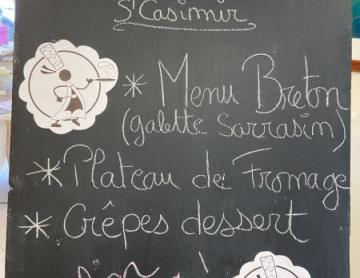 St Casimir
* Menu Breton
(galette Sarrasin)
* Plateau de Fromage
* Crêpes dessert